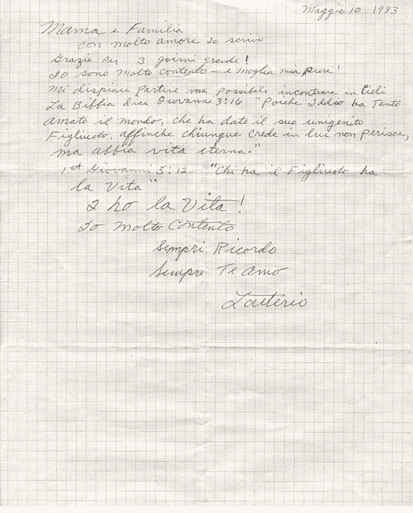 Maggio 10 1993
Mama e Familia
con molto amore Io scrivo
Grazie per 3 giorni grande!
Io sono molto contento - e moglia mia pure!
Mi dispiaci partire ma possibile incontrare in Cieli
La Bibbia dice Giovanni 3:16 "Poiche Iddio ha tanto
amato il mondo, che ha dato il suo unigenito
Figliuolo, affinche chiunque crede in lui non perisca,
ma abbia vita eterna."
1st Giovanni 5:12 "Chi ha il Figliuolo ha
la Vita"
I ho la Vita!
Io molto Contento
Sempri Ricordo
Sempre Te amo
Lauterio